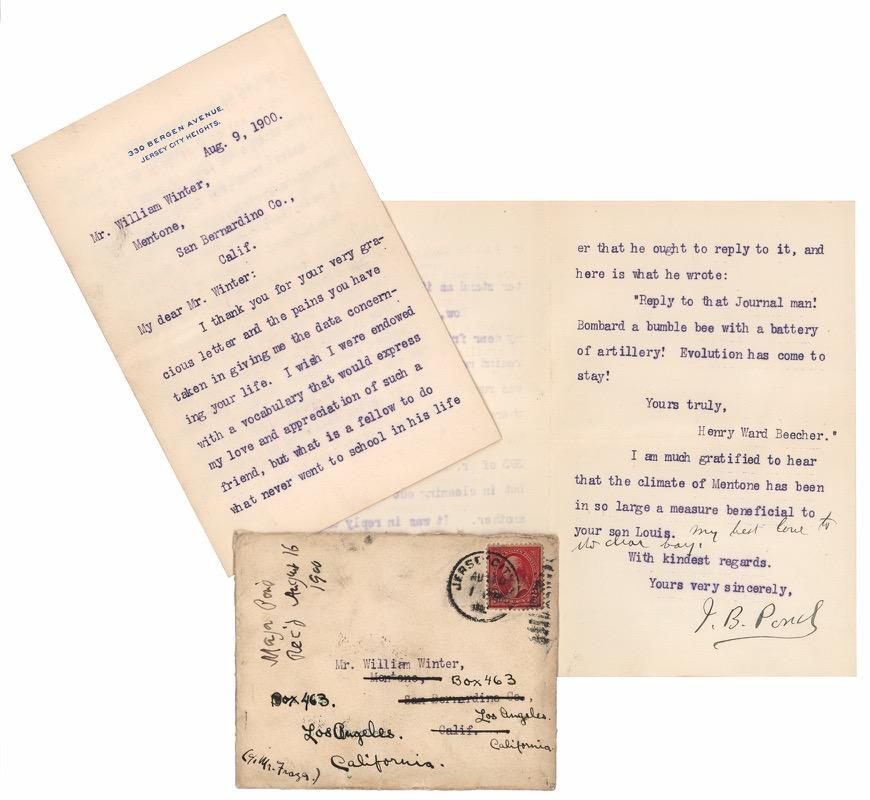 330 BERGEN AVENUE
JERSEY CITY HEIGHTS.
Aug. 9, 1900.
Mr. William Winter,
Mentone,
San Bernardino Co.,
Calif.
My dear Mr. Winter:
I thank you for your very gra-
cious letter and the pains you have
taken in giving me the data concern-
ing your life. I wish I were endowed
with a vocabulary that would express
my love and appreciation of such a
friend, but what is a fellow to do
what never went to school in his life
er that he ought to reply to it, and
here is what he wrote:
"Reply to that Journal man!
Bombard a bumble bee with a battery
of artillery! Evolution has come to
stay!
Yours truly,
Henry Ward Beecher."
I am much gratified to hear
that the climate of Mentone has been
in so large a measure beneficial to
your son Louis. My best love to
dear boy.
With kindest regards.
Yours very sincerely,
J. B. Pond
Major Pond
Rec'd August 16
1900
JERSEY CITY
Mr. William Winter,
Mentone, Box 463
San Bernardino Co.,
Box 463.
Los Angeles.
Los Angeles.
Calif.
California
California.